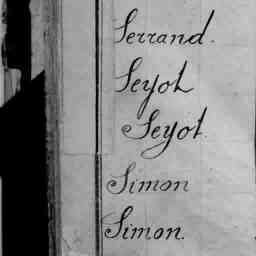 Serrand.
Seyot
Seyot.
Simon
Simon.